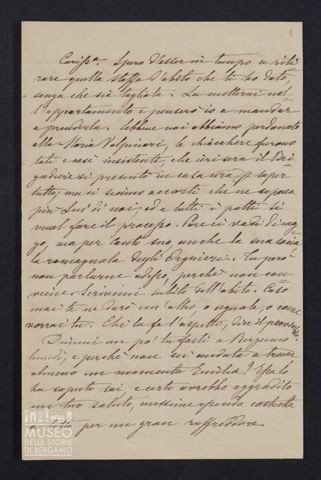 1
Cariss.a Spero d'esser in tempo a riti-
rare quella stoffa d'abito che ti ho dato,
senza che sia tagliata. La metterai nel-
l'appartamento e penserò io a mandar
a prenderla. Sebbene noi abbiamo perdonato
alla Maria Valpinari, le chiacchere furono
tali e così insistenti che ieri sera il Bri-
gadiere si presentò in casa a saper
tutto; ma ci siamo accorti che ne sapeva
più lui di noi; ed a tutti i patti si
vuol fare il processo. Pare ci vada di mez-
zo, ma per conto suo anche la sua socia
la romagnola degli Orfnieri. Tu però
non parlarne adesso, perchè non con-
viene. Scrivimi subito dell'abito. Caso
mai te ne darò un altro, o eguale, o come
vorrai tu. Chi la fa l'aspetti, dice il proverbio.
Dimmi un po': tu fosti a Bergamo
lunedì, e perchè non sei andata a trovar
almeno un momento Emilia? Essa lo
ha saputo poi e certo avrebbe aggradito
un tuo saluto, massime essendo costretta
a letto per un gran raffreddore.
MUSEO
DELLE STORIE
DI BERGAMO